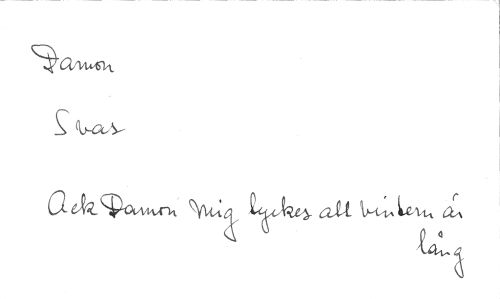 Damon
Svas
Ack Damon mig tyckes att vintern är
lång